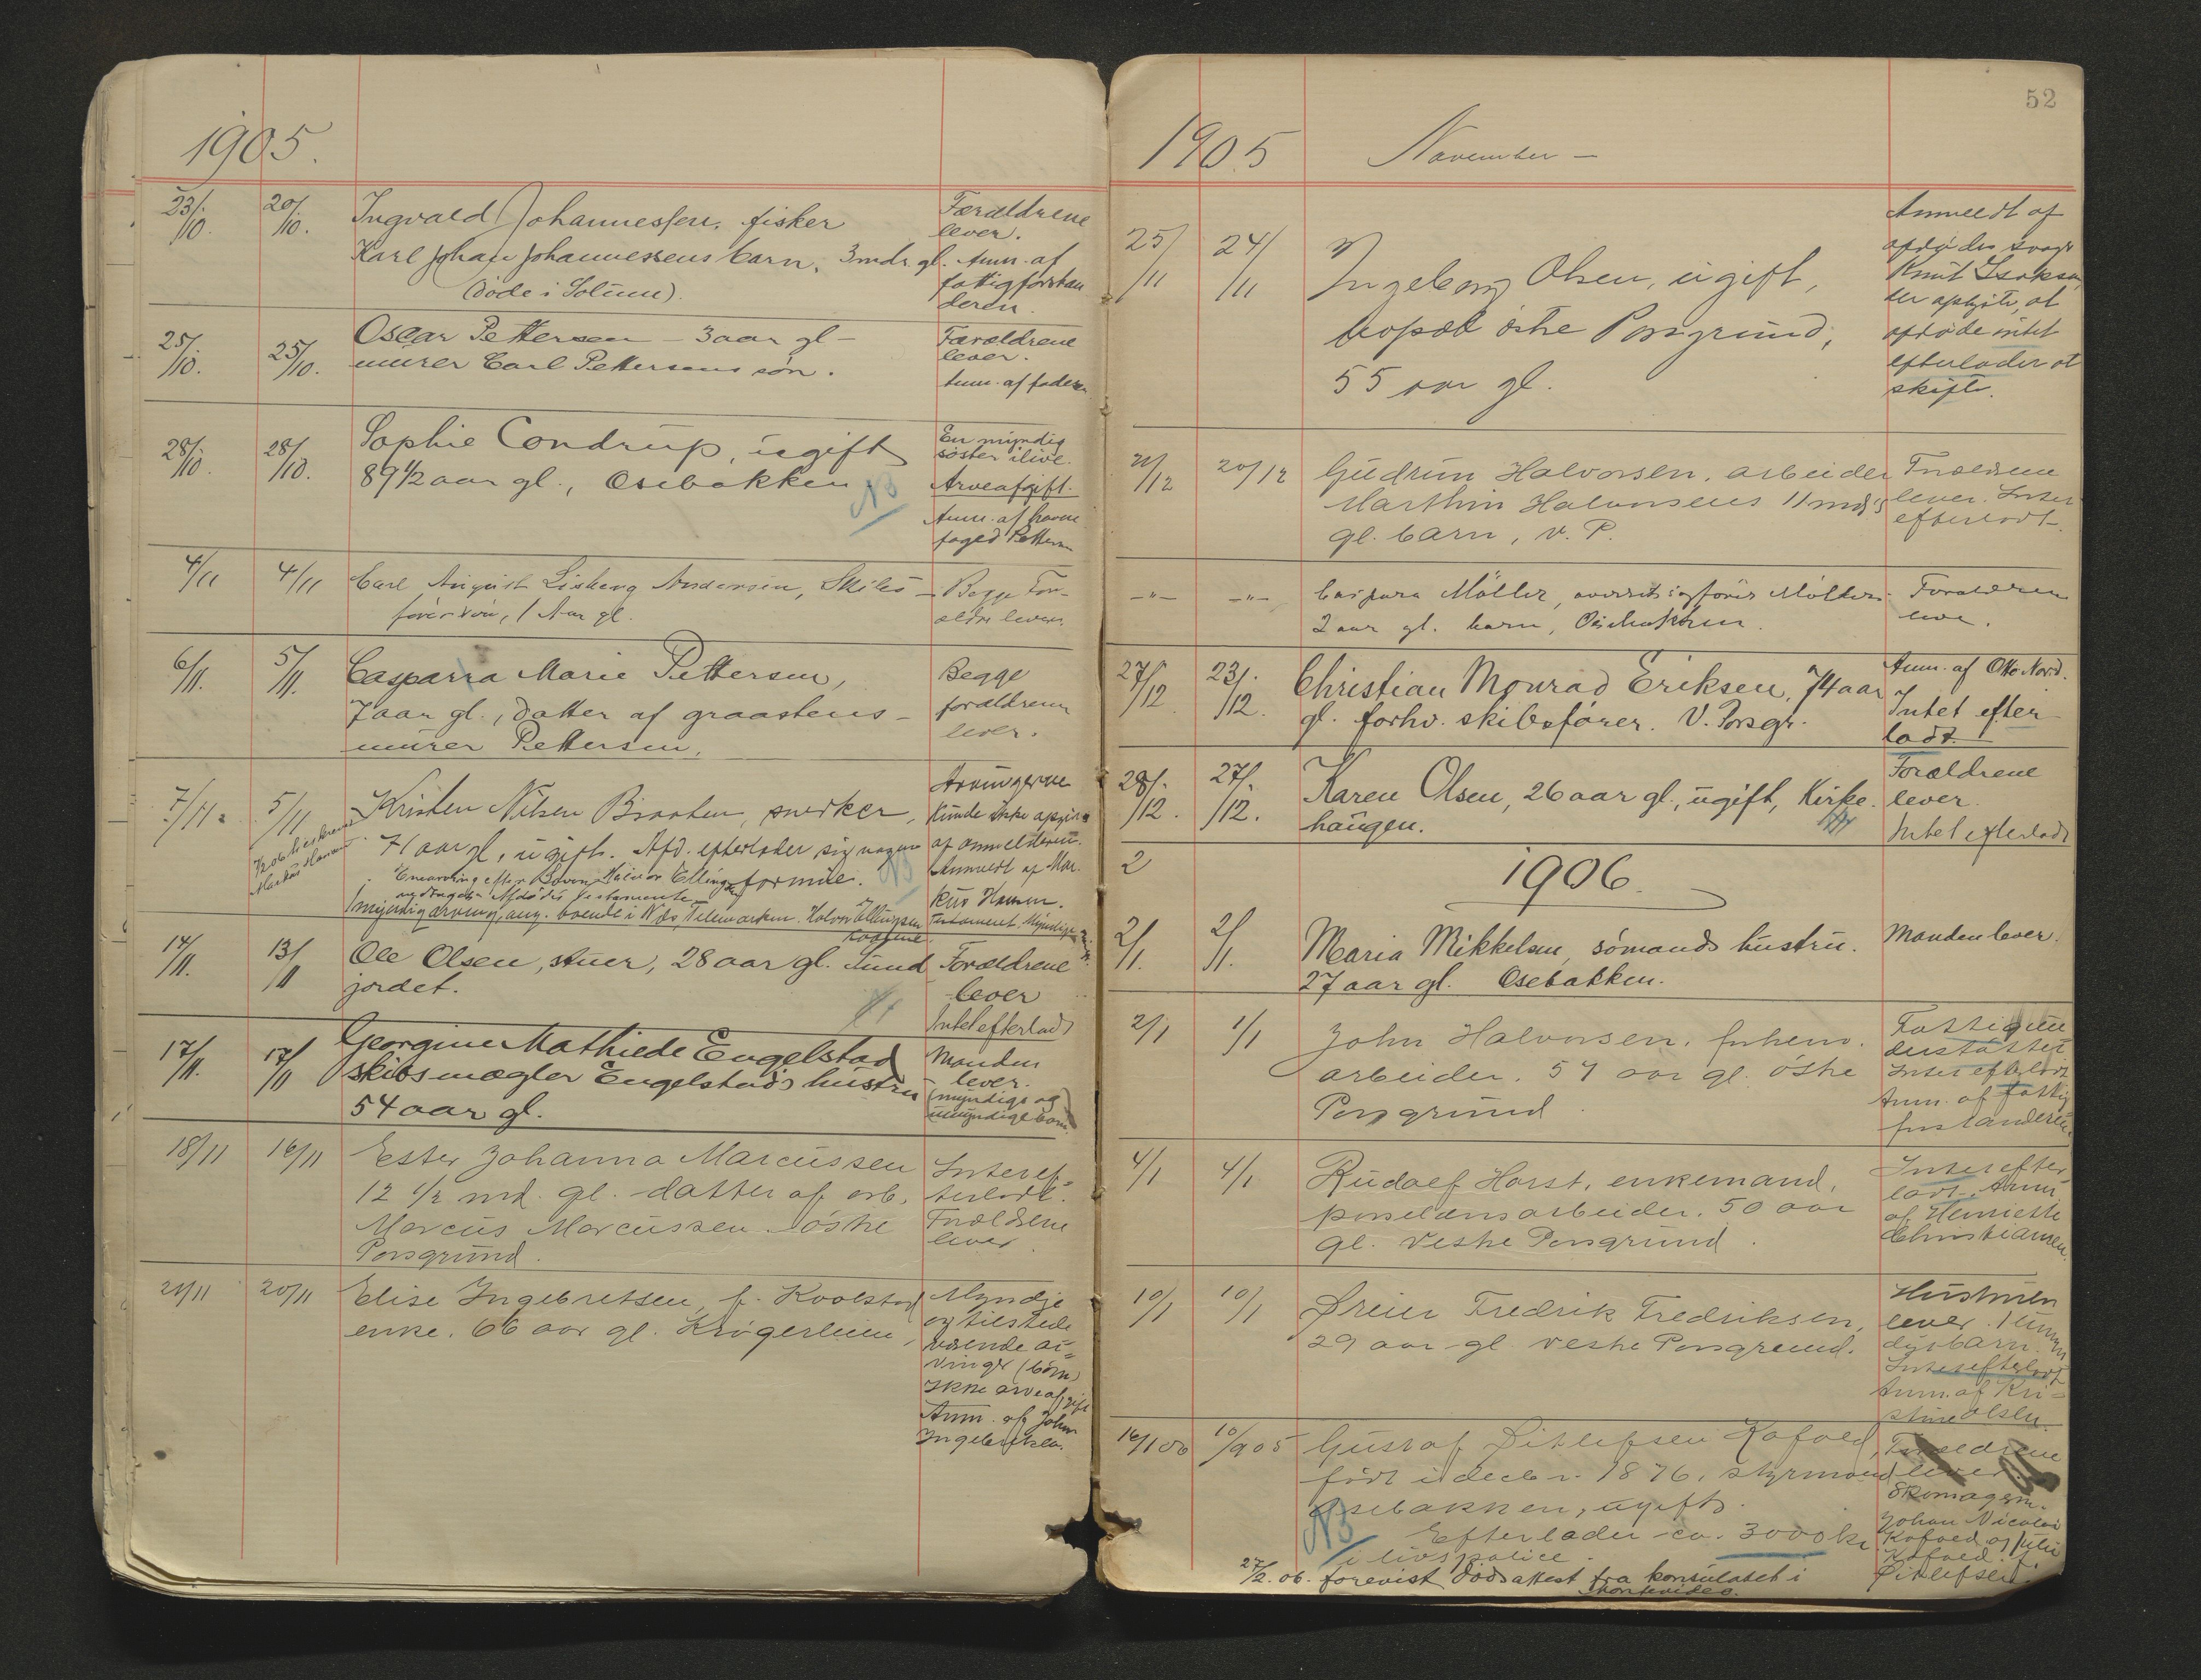 1905.
23/10. 20/10. Ingvald Johannessen, fisker
Karl Johan Johannessens barn, 3 mdr. gl.
(döde i Solum).
Forældrene
lever.
Anm. af
fattigforstan
deren.
25/10. 25/10. Oscar Pettersen – 3 aar gl –
murer Carl Pettersens søn.
Forældrene
lever.
Anm. af faderen
28/10. 28/10. Sophie Condrup, ugift
89 1/2 aar gl., Osebakken
NB
En myndig
söster ilive.
Arveafgift.
Anm. af havne
foged Pettersen
4/11 4/11 Carl August Lisberg Andersen, Skibs-
förersön, 1 Aar gl.
Begge For-
ældre lever.
6/11. 5/11. Casparra Marie Pettersen,
7 aar gl., datter af graastens-
murer Pettersen.
Begge
forældrene
lever.
7/11. 5/11 Kristen Nilsen Braaten, snedker,
71 aar gl, ugift. Afd. efterlader sig nogen
formue.
NB
Enearving efter
Afdödes Testamente
1 myndig arving, ang. boende i Næs, Telemarken. Halvor Ellingsen
Arvingerne
kunde ikke opgives
af anmelderen.
Anmeldt af Mar-
kus Hansen.
Testament. Myndige
14/11. 13/11 Ole Olsen, stuer, 28 aar gl. Lund
jordet.
Forældrene
lever
Intet efterladt
17/11. 17/11 Georgine Mathilde Engelstad
skibsmægler Engelstads hustru
54 aar gl.
Manden
lever.
(myndige og
umyndige barn)
18/11 16/11 Ester Johanna Marcussen
12 1/2 md. gl. datter af arb.
Marcus Marcussen östre
Porsgrund.
Intet ef-
terladt.
Forældrene
lever
21/11 20/11 Elise Ingebretsen, f. Kvolstad
enke. 66 aar gl. Krögerleiren,
Myndige
og tilstede
værende ar-
vinger (börn)
Ikke arveafgift
Anm. af John
Ingebretsen.
52
1905 November –
25/11 24/11 Ingeborg Olsen, ugift,
bopæl östre Porsgrund,
55 aar gl.
Anmeldt af
afdödes svoger
Knut Isaksen,
der opgiver, at
afdöde intet
efterlader at
skifte.
21/12 20/12 Gudrun Halvorsen, arbeider
Marthin Halvorsens 11 mdr's
gl. barn, v. P.
Forældrene
lever. Intet
efterladt.
–"– –"– Caspara Möller, overretssagförer Möllers
2 aar gl. barn, Osebakken.
Forældrene
lever.
27/12 23/12. Christian Monrad Eriksen, 74 aar
gl. forhv. skibsförer. V. Porsgr.
Anm. af Otto Nord.
Intet efter
ladt.
28/12. 27/12. Karen Olsen, 26 aar gl., ugift, Kirke-
haugen.
Forældrene
lever.
Intet efterladt
2
1906.
2/1. 2/1. Maria Mikkelsen, sömands hustru.
27 aar gl. Osebakken.
Manden lever.
2/1 1/1 John Halvorsen, forhenv.
arbeider. 57 aar gl. östre
Porsgrund.
Fattigun
derstöttet
Intet efterladt
Anm. af fattig
forstanderen.
4/1 4/1 Rudolf Horst, enkemand,
porselænsarbeider. 50 aar
gl. Vestre Porsgrund.
Intet efter
ladt. Anm.
af Henriette
Christiansen.
10/1 10/1 Dreier Fredrik Fredriksen,
29 aar gl. vestre Porsgrund.
Hustruen
lever. 1 umyn
digt barn.
Intet efterladt
Anm. af Kri-
stine Olsen.
16/1 06 10/9 05 Gustaf Ditlefsen Kofoed,
födt i decbr. 1876, styrmand
Osebakken, ugift.
NB
Efterlader ca. 3000 kr.
i livspolice.
27/2. 06. forevist dödsattest fra konsulatet i
Montevideo.
Forældrene
lever.
Skomagerm.
Johan Nicolai
Kofoed og Julie
Kofoed f.
Ditlefsen.